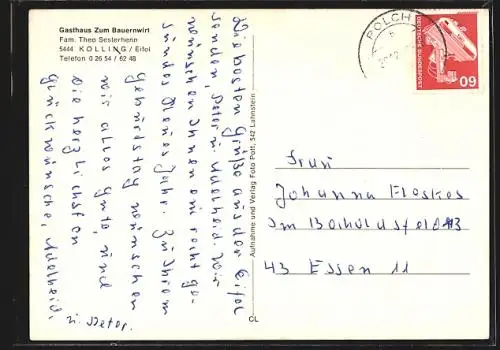 Gasthaus Zum Bauernwirt
Fam. Theo Sesterhenn
5444 KOLLING / Eifel
Telefon 0 26 54 / 62 48
Die besten Grüße aus der Eifel
senden, Peter u. Adelheid. Wir
wünschen Ihnen ein recht ge-
sundes Neues Jahr. Zu Ihrem
Geburtstag wünschen
wir alles Gute, und
die herzlichsten
Glückwünsche, Adelheid,
u. Peter.
Aufnahme und Verlag Foto Pott, 542 Lahnstein
CL
POLCH
DEUTSCHE BUNDESPOST
60
Frau
Johanna Floskes
Im
43 Essen 11